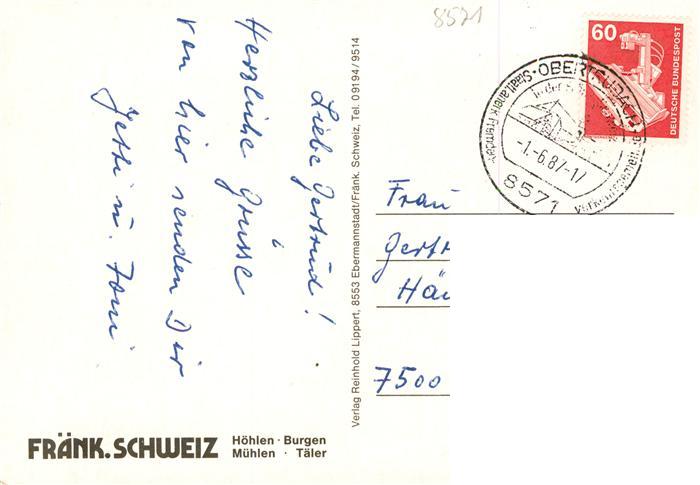 8571
60
DEUTSCHE BUNDESPOST
OBERTRUBACH
-1.-6.87-17
8571
Liebe Gertrud!
Herzliche Grüsse
von hier senden Dir
Frau
Gertr
Häu
7500
Verlag Reinhold Lippert, 8553 Ebermannstadt/Fränk. Schweiz, Tel. 09194/9514
FRÄNK. SCHWEIZ
Höhlen · Burgen
Mühlen · Täler